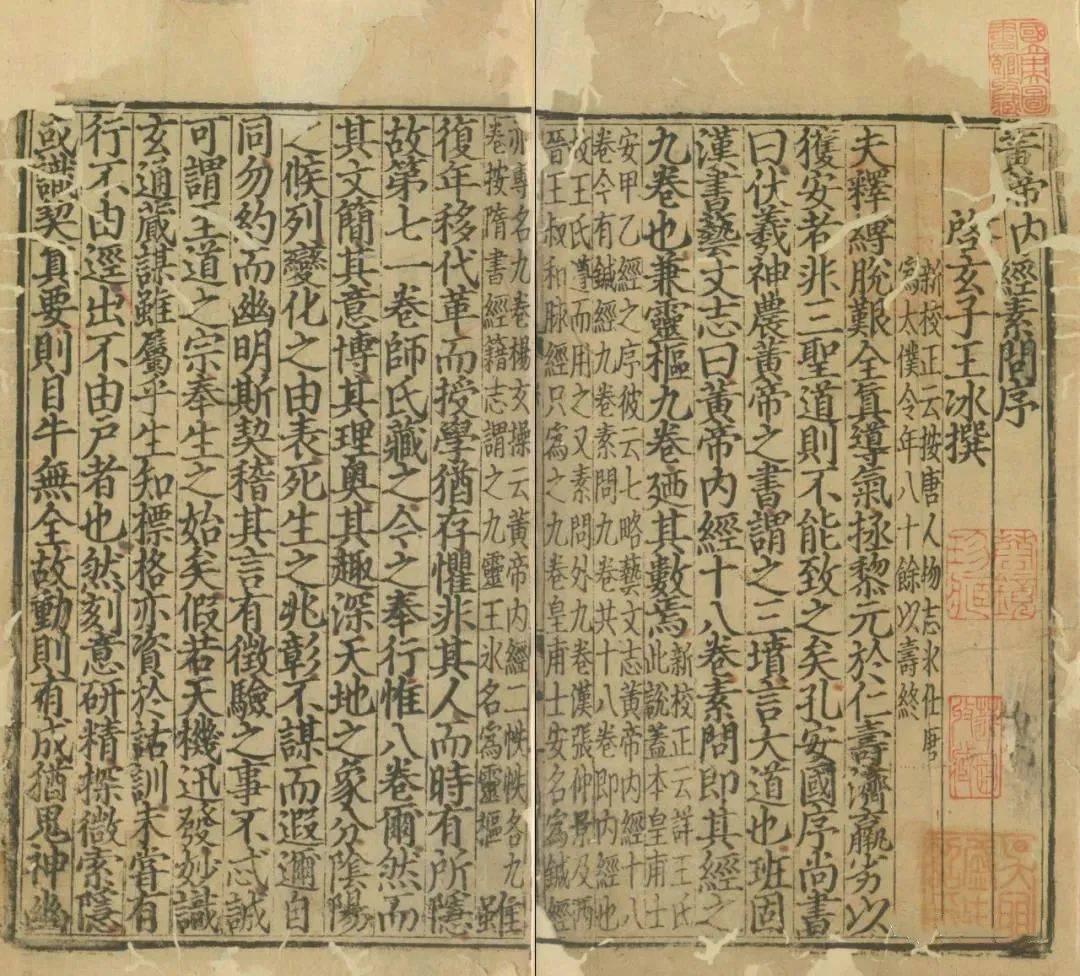 黃帝内經素問序
啓玄子王冰撰
新校正云按唐人物志氷仕唐
爲太僕令年八十餘以壽終
夫釋縛脫艱全真導氣拯黎元於仁壽濟羸劣以
獲安者非三聖道則不能致之矣孔安國序尚書
曰伏羲神農黄帝之書謂之三墳言大道也班固
漢書藝文志曰黃帝内經十八卷素問即其經之
九卷也兼靈樞九卷廼其數焉
新校正云詳王氏
此說蓋本皇甫士
安甲乙經之序彼云七略藝文志黄帝内經十八
卷今有鍼經九卷素問九卷共十八卷即内經也
故王氏遵而用之又素問外九卷漢張仲景及西
晉王叔和脉經只爲之九卷皇甫士安名爲鍼經
亦專名九卷楊玄操云黄帝内經二帙帙各九
卷按隋書經籍志謂之九靈王氷名爲靈樞
雖
復年移代革而授學猶存懼非其人而時有所隱
故第七一卷師氏藏之今之奉行惟八卷爾然而
其文簡其意博其理奥其趣深天地之象分陰陽
之候列變化之由表死生之兆彰不謀而遐邇自
同勿約而幽明斯契稽其言有徵驗之事不忒誠
可謂至道之宗奉生之始矣假若天機迅發妙識
玄通蕆謀雖屬乎生知標格亦資於詁訓未嘗有
行不由逕出不由戶者也然刻意研精探微索隱
或識契真要則目牛無全故動則有成猶鬼神幽